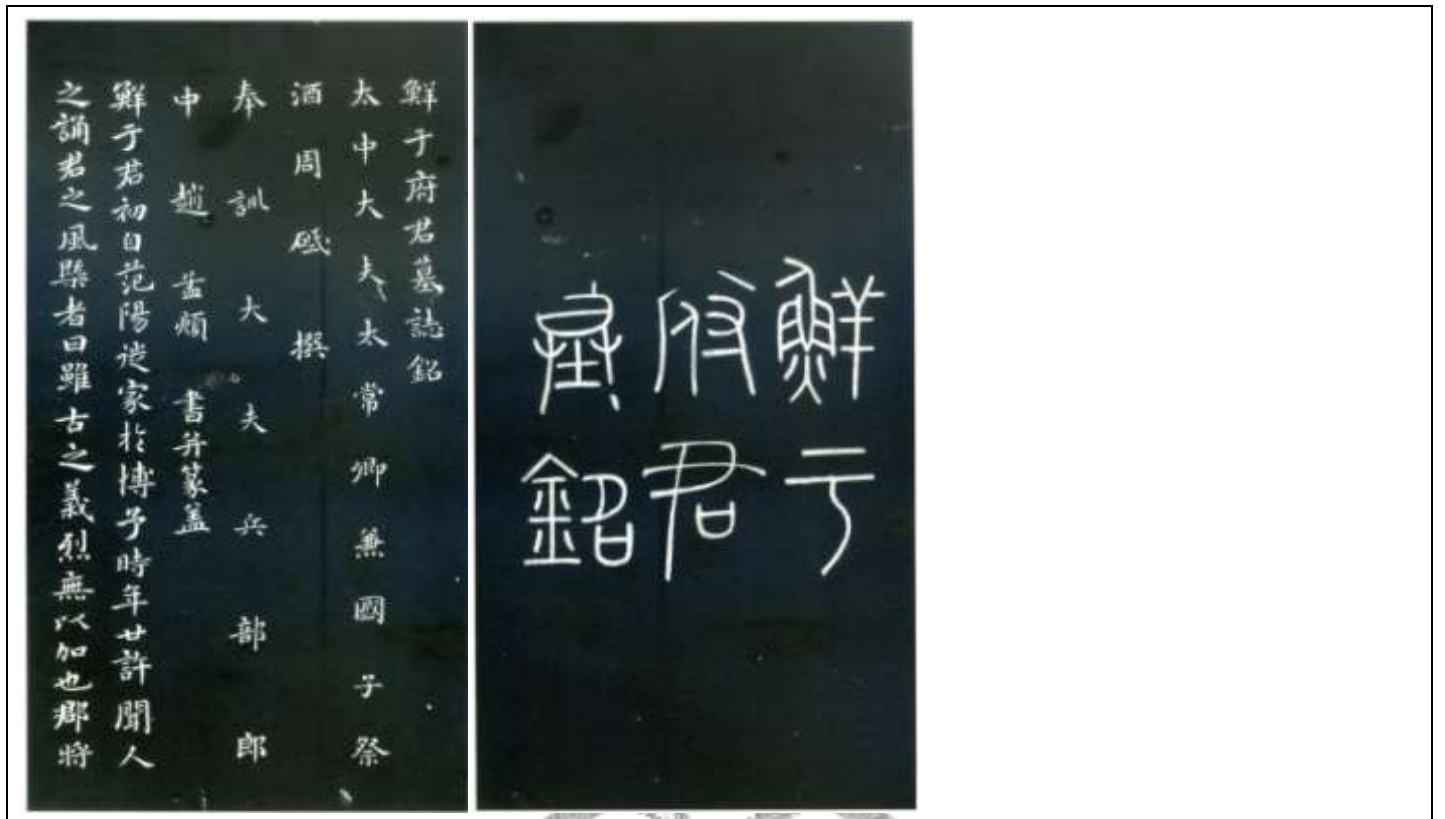 鮮于
府君
墓銘
鮮于府君墓誌銘
太中大夫太常卿兼國子祭
酒周砥撰
奉訓大夫兵部郎
中趙孟頫書并篆盖
鮮于君初自范陽徙家於博予時年廿許聞人
之誦君之風槩者曰雖古之義烈無以加也郡將